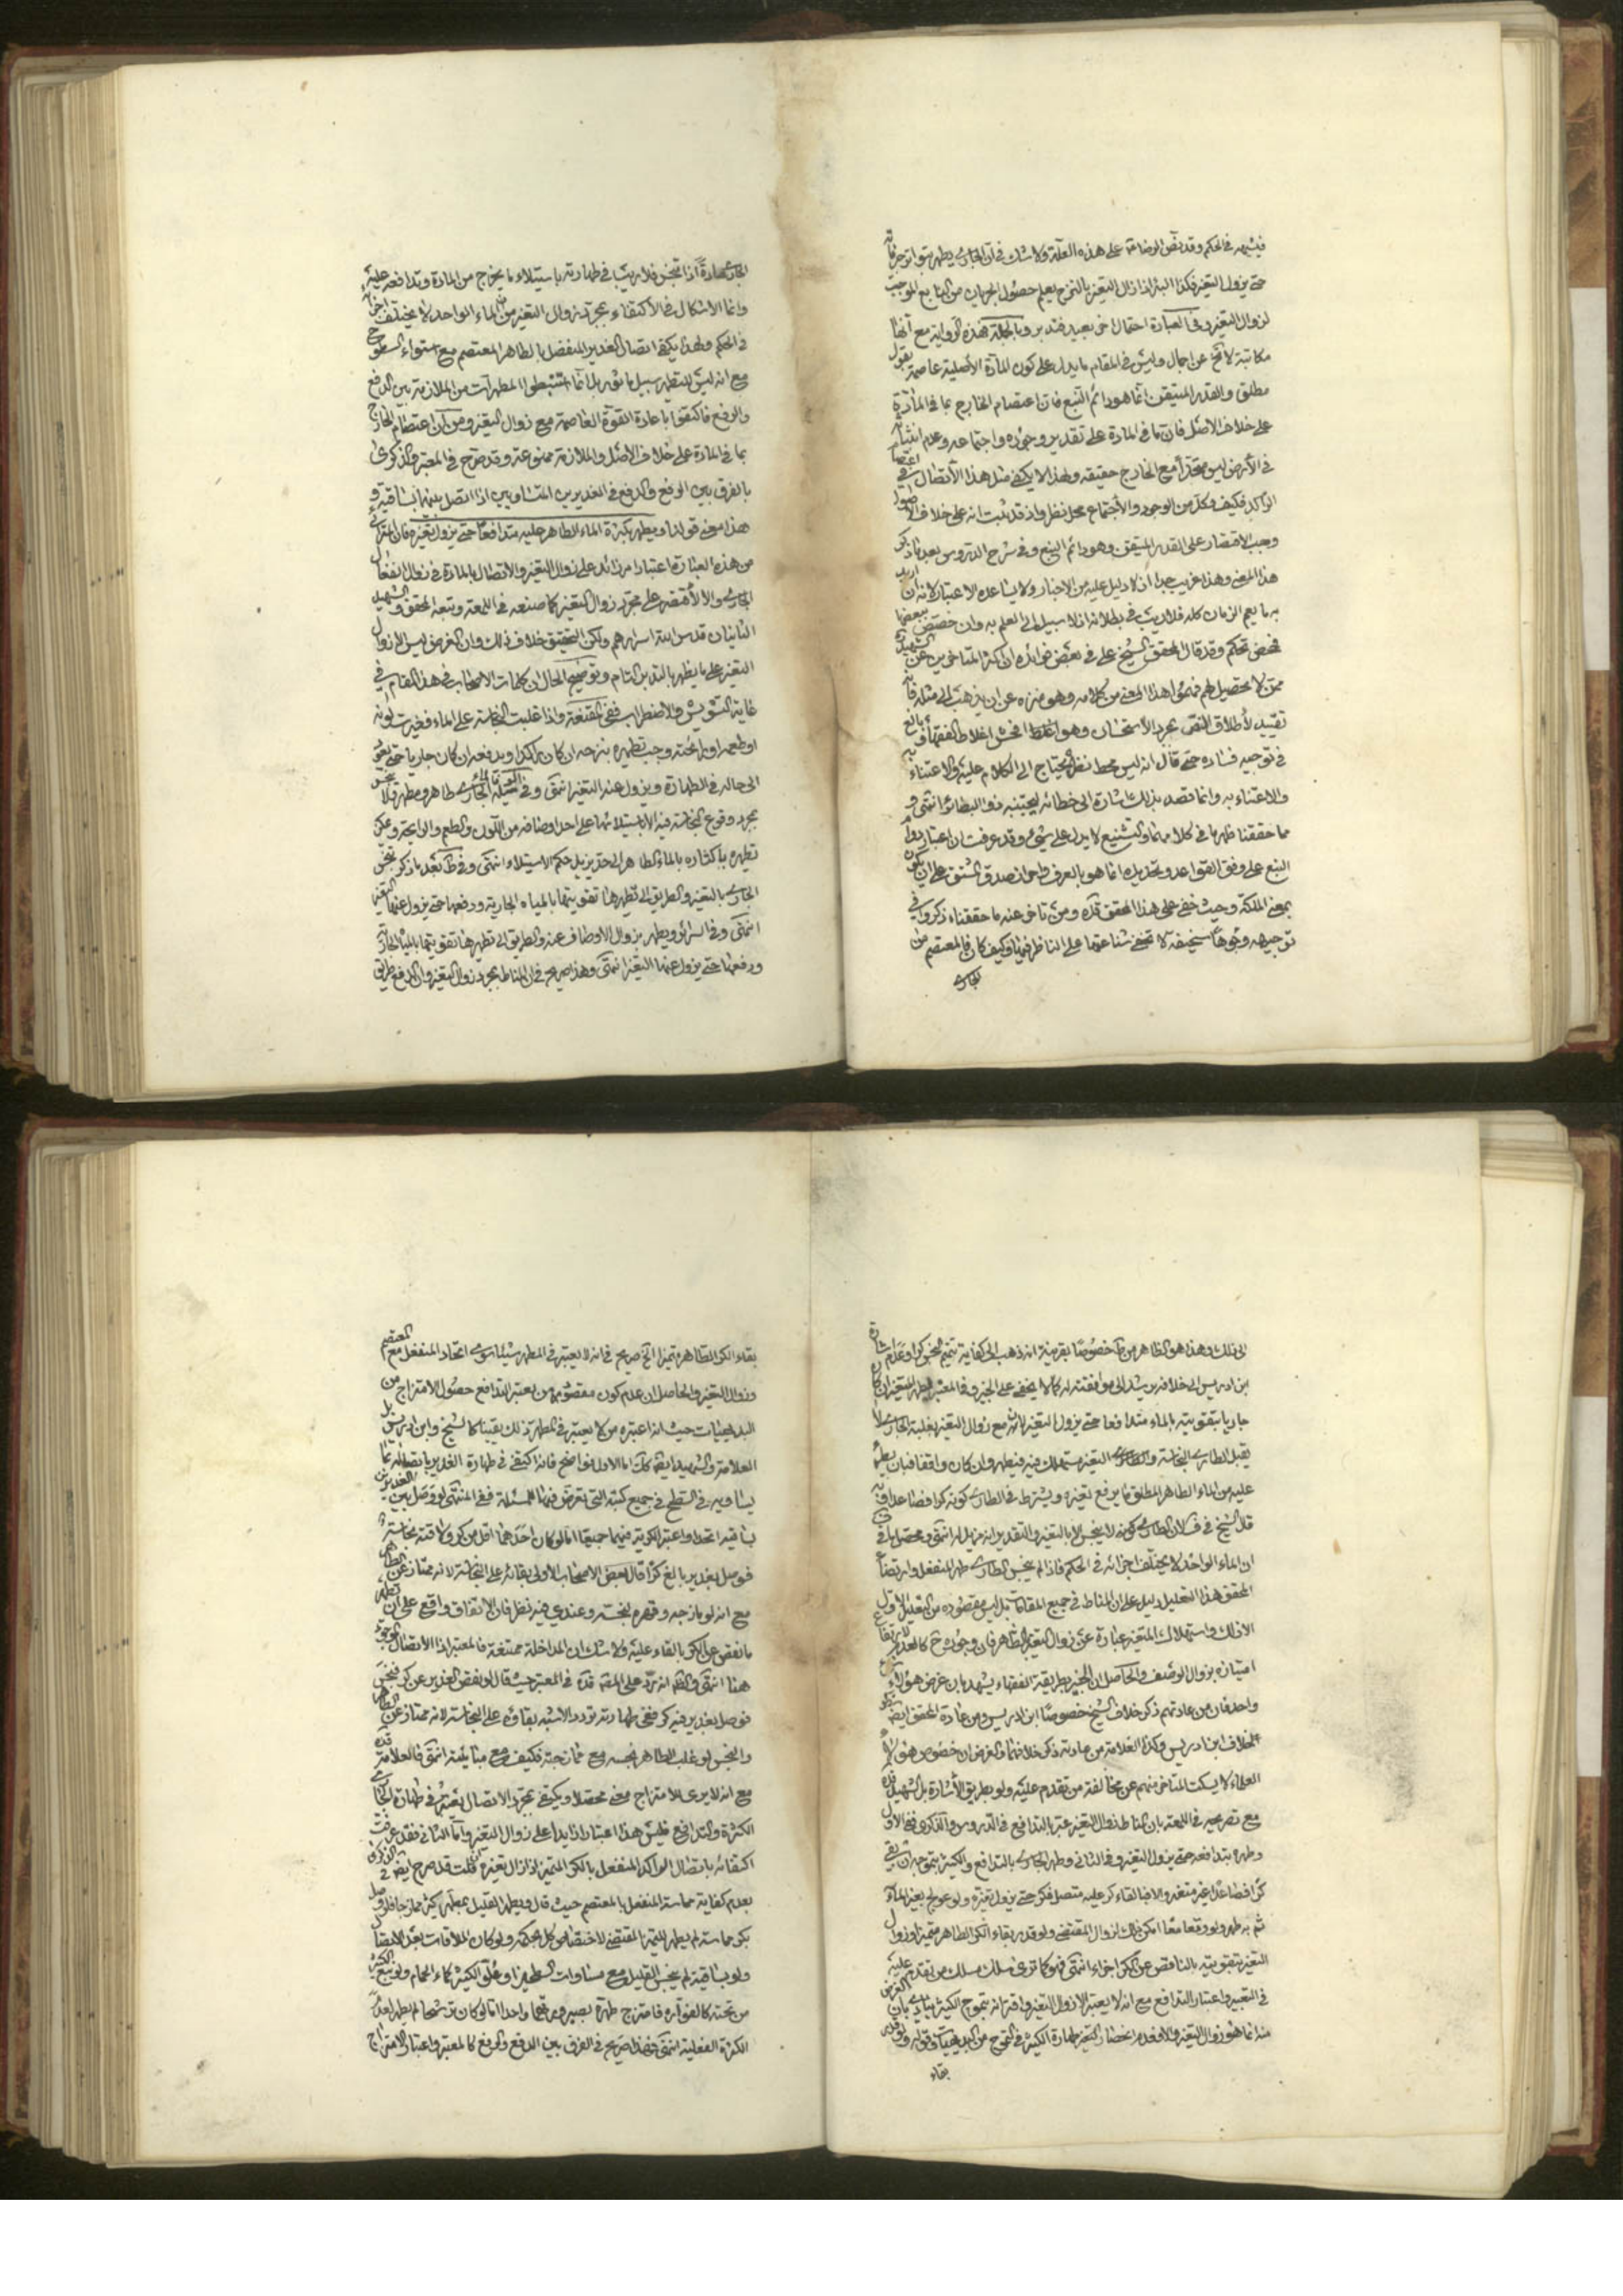 فيشبهه في الحكم وقد نص الرضا ع على هذه العلة ولا شك في ان الجاري يطهر بتواتر جريانه
حتى يزول التغير فكذا البئر اذا زال التغير بالنزح يعلم حصول الجريان من النابع الموجب
لزوال التغير وفي العبارة احتمال اخر بعيد فتدبر وبالجملة فهذه الرواية مع انها
مكاتبة لا تخ عن اجمال وليس في المقام ما يدل على كون المادة الاصلية عاصمة بقول
مطلق والقدر المتيقن انما هو دائم النبع فان اعتصام الخارج بما في المادة
على خلاف الاصل فان ما في المادة على تقدير وجوده واجتماعه وعدم انبثاثه
في الارض ليس متحدا مع الخارج حقيقة ولهذا لا يكفي مثل هذا الاتصال في
الراكد فكيف وكل من الوجود والاجتماع محل نظر واذ قد ثبت انه على خلاف الاصول
وجب الاقتصار على القدر المتيقن وهو دائم النبع وفي شرح الدروس بعد ما ذكر
هذا المعنى وهذا غريب جدا اذ لا دليل عليه من الاخبار ولا يساعده الاعتبار لانه ان اريد
به ما يعم الزمان كله فلا ريب في بطلانه اذ لا سبيل الى العلم به وان خصص ببعضها
فمحض تحكم وقد قال المحقق الشيخ علي في بعض فوائده ان اكثر المتاخرين عن الشهيد ره
ممن لا تحصيل لهم فهموا هذا المعنى من كلامه وهو منزه عن ان يذهب الى مثله فانه
تقييد لاطلاق النص بمجرد الاستحسان وهو افحش اغلاط الفقهاء وبالغ
في توجيه فساده حتى قال انه ليس محط نظر يحتاج الى الكلام عليه والاعتناء به
والاعتناء به وانما قصد بذلك اشارة الى خطائه ليجتنبه ذوا البصائر انتهى و
مما حققنا ظهر ما في كلامهما والتشنيع لا يدل على شيء وقد عرفت ان اعتبار دوام
النبع على وفق القواعد وتحديده انما هو بالعرف واحراز صدق المشتق على ان يكون
بمعنى الملكة وحيث خفي على هذا المحقق قده ومن تاخر عنه ما حققناه ذكروا في
توجيهه وجوها سخيفة لا تخفى شناعتها على الناظر فيها وكيف كان فالمعتصم من
الجاري
الجاري عادة اذا تنجس فلا ريب في طهارته باستيلاء ما يخرج من المادة وتدافعه عليه
وانما الاشكال في الاكتفاء بمجرد زوال التغير من ان الماء الواحد لا يختلف اجزائه
في الحكم ولهذا يكفي اتصال الغدير المنفعل بالطاهر المعتصم مع استواء السطوح
مع انه ليس للتطهر سبيل ماثور بل انما استنبطوا المطهرات من الملازمة بين الدفع
والرفع فاكتفوا باعادة القوة العاصمة مع زوال التغير ومن ان اعتصام الخارج
بما في المادة على خلاف الاصل والملازمة ممنوعة وقد صرح في المعتبر والذكرى
بالفرق بين الرفع والدفع في الغديرين المتساويين اذا اتصل بينهما بساقية و
هذا معنى قولنا ويطهر بكثرة الماء الطاهر عليه متدافعا حتى يزول تغيره فان المترائى
من هذه العبارة اعتبار امر زائد على زوال التغير والاتصال بالمادة في زوال انفعال
الجاري والا لاقتصر على مجرد زوال التغير كما صنعه في اللمعة وتبعه المحقق والشهيد
الثانيان قدس الله اسرارهم ولكن التحقيق خلاف ذلك وان الغرض ليس الا زوال
التغير على ما يظهر بالتدبر التام وتوضيح الحال ان كلمات الاصحاب في هذا المقام في
غاية التشويش والاضطراب ففي المقنعة واذا غلبت النجاسة على الماء فغيرت لونه
او طعمه او رائحته وجب تطهيره بنزحه ان كان راكدا وبدفعه ان كان جاريا حتى يعود
الى حاله في الطهارة ويزول عنه التغير انتهى وفي الوسيلة الماء الجاري طاهر ومطهر ولا ينجس
بمجرد وقوع النجاسة فيه الا باستيلائها على احد اوصافه من اللون والطعم والرائحة ويمكن
تطهيره باكثاره بالماء الطاهر الى حد يزيل حكم الاستيلاء انتهى وفي ط بعد ما ذكر تنجس
الجاري بالتغير والطريق الى تطهيرها تقويتها بالمياه الجارية ودفعها حتى يزول عنها التغير
انتهى وفي السرائر ويطهر بزوال الاوصاف عنه والطريق الى تطهيرها تقويتها بالمياه الجارية
ودفعها حتى يزول عنها التغير انتهى وهذا صريح في ان المناط مجرد زوال التغير وان الدفع طريق
الى ذلك وهذا هو الظاهر من ط خصوصا بقرينة انه ذهب الى كفاية تتميم النجس كرا وعدم اشارة
ابن ادريس الى خلافه يرشد الى موافقته له كما لا يخفى على الخبير وفي المعتبر يطهر المتغير ان كان
جاريا بتقويته بالماء متدافعا حتى يزول التغير لانه مع زوال التغير بغلبة الجاري لا
يقبل الطاري النجاسة والمتغير مستهلك فيه فيطهر وان كان واقفا فبان يطرء
عليه من الماء الطاهر المطلق ما يرفع تغيره ويشترط في الطاري كونه كرا فصاعدا قاله
قال الشيخ في ف لان الطاري كونه لا ينجس الا بالتغير والتقدير انه مزيل له انتهى ومحصله
ان الماء الواحد لا يختلف اجزائه في الحكم فاذا لم ينجس الطاري طهر المنفعل وارتضاء
المحقق هذا التعليل دليل على ان المناط في جميع المقامات بل ليس مقصوده من التعليل الاول
الا ذلك واستهلاك المتغير عبارة عن زوال التغير الظاهر فان وجوده ح كالعدم لارتفاع
امتيازه بزوال الوصف والحاصل ان الخبير بطريقة الفقهاء يشهد بان غرض هؤلاء
واحد فان من عادتهم ذكر خلاف الشيخ خصوصا ابن ادريس ومن عادة المحقق ايضا ذكر
خلاف ابن ادريس وكذا العلامة من عادته ذكر خلافهما والغرض ان خصوص هؤلاء
العلماء لا يسكت المتاخر منهم عن مخالفة من تقدم عليه ولو بطريق الاشارة بل الشهيد قده
مع تصريحه في اللمعة بان المناط زوال التغير عبر بالتدافع في الدروس والذكرى ففي الاول
وطهره بتدافعه حتى يزول التغير وفي الثاني وطهر الجاري بالتدافع والكثير بتموجه ان بقي
كرا فصاعدا غير متغير والا فبالقاء كر عليه متصل فكر حتى يزول تغيره ولو عولج بغير الماء
ثم به طهر ولو دفعا معا امكن ذلك لزوال المقتضى ولو قدر بقاء الكر الطاهر متميزا وزوال
التغير بتقويته بالناقص عن الكر اجزاء انتهى فهو كما ترى سلك مسلك من تقدم عليه
في التعبير واعتبار التدافع مع انه لا يعتبر الا زوال التغير واقترانه بتموج الكثير ينادي بان الغرض
منه انما هو زوال التغير والا فعدم انحصار طهارة الكثير في التموج من البديهيات وقوله ولو قدر
بقاء
بقاء الكر الطاهر متميزا الخ صريح في انه لا يعتبر في المطهر شيئا سوى اتحاد المنفعل مع المعتصم
وزوال التغير والحاصل ان عدم كون مقصودهم من يعتبر التدافع حصول الامتزاج من
البديهيات حيث انه اعتبره من لا يعتبر في المطهر ذلك يقينا كالشيخ وابن ادريس بل
العلامة والشهيد ايضا كك اما الاول فواضح فانه اكتفى في طهارة الغدير باتصاله بما
يساويه في السطح في جميع كتبه التي تعرض فيها للمسئلة ففي المنتهى لو وصل بين الغديرين
بساقية اتحدا واعتبر الكرية فيهما جميعا اما لو كان احدهما اقل من كر ولاقته نجاسة
فوصل بغدير بالغ كرا قال بعض الاصحاب الاولى بقائه على النجاسة لانه ممتاز عن الطاهر
مع انه لو مازجه وقهره لنجسه وعندي فيه نظر فان الاتفاق واقع على ان تطهير
ما نقص عن الكر بالقاء كر عليه ولا شك ان المداخلة ممتنعة فالمعتبر اذا الاتصال الموجود
هنا انتهى والظ انه رد على المحقق قده في المعتبر حيث قال لو نقص الغدير عن كر فنجس
فوصل بغدير فيه كر ففي طهارته تردد والاشبه بقاؤه على النجاسة لانه ممتاز عن الطاهر
والنجس لو غلب الطاهر نجسه مع ممازجته فكيف مع مباينته انتهى فالعلامة قده
مع انه لا يرى للامتزاج معنى محصلا ويكتفي بمجرد الاتصال يعتبر في طهارة الجاري
الكثرة والتدافع فليس هذا اعتبارا زايدا على زوال التغير واما الثاني فقد عرفت
اكتفائه باتصال الراكد المنفعل بالكر المتميز اذا زال تغيره فان قلت قد صرح ايضا في الذكرى
بعدم كفاية مماسة المنفعل بالمعتصم حيث قال ويطهر القليل بمطهر الكثير ممازجا فلو وصل
بكر مماسة لم يطهر للتميز المقتضي لاختصاص كل بحكمه ولو كان الملاقات بعد الاتصال
ولو بساقية لم ينجس القليل مع مساوات السطحين او علو الكثير كماء الحمام ولو نبع الكثير
من تحته كالفوارة فامتزج طهره بصيرورتهما واحدا اما لو كان ترشحا لم يطهر لعدم
الكثرة الفعلية انتهى فهذا صريح في الفرق بين الدفع والرفع كالمعتبر واعتبار الامتزاج